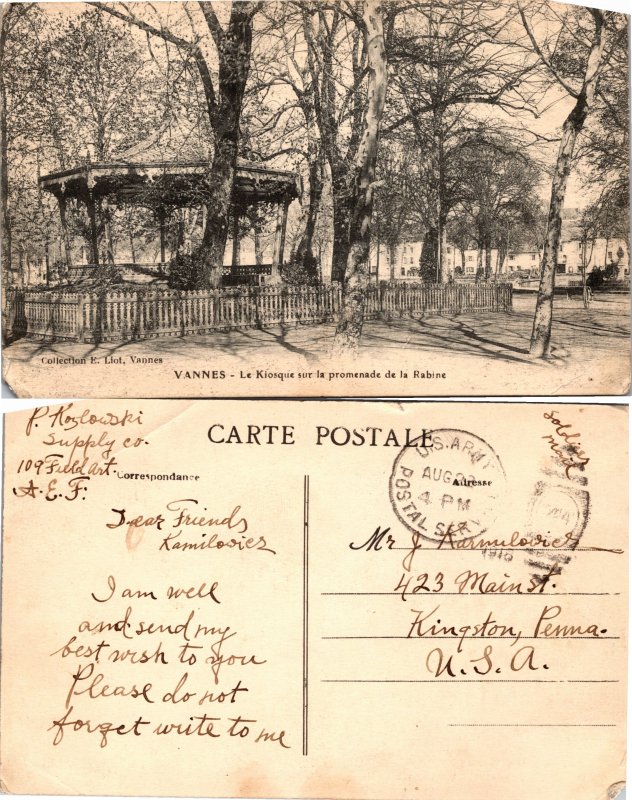 Collection E. Liot, Vannes
VANNES - Le Kiosque sur la promenade de la Rabine
P. Kozlowski
Supply co.
109 Field Art.
A. E. F.
CARTE POSTALE
Correspondance
Adresse
U.S. ARMY
AUG
4 PM
POSTAL SER
1918
soldier
mail
Dear Friends
Kamilovicz
I am well
and send my
best wish to you
Please do not
forget write to me
Mr J Karmilovicz
423 Main st.
Kingston, Penna.
U. S. A.